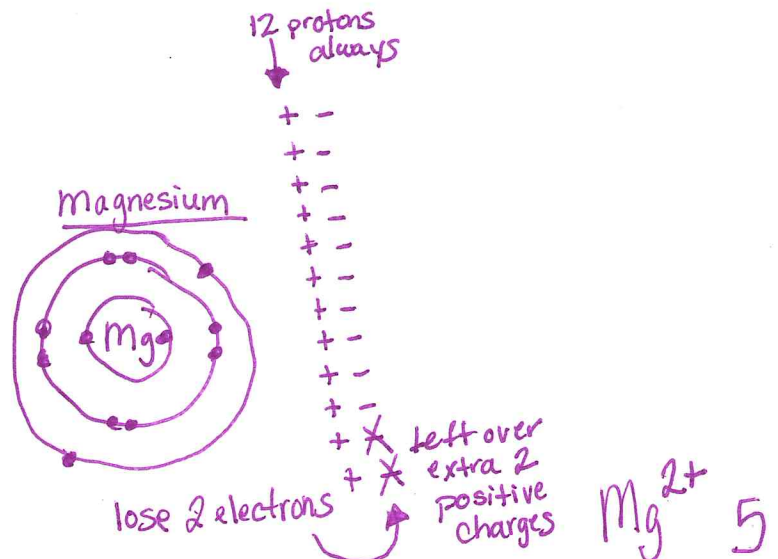 12 protons
always
+ -
+ -
+ -
+ -
+ -
+ -
+ -
+ -
+ -
+ -
+
+
Magnesium
Mg
left over
extra 2
positive
charges
lose 2 electrons
Mg²⁺
5